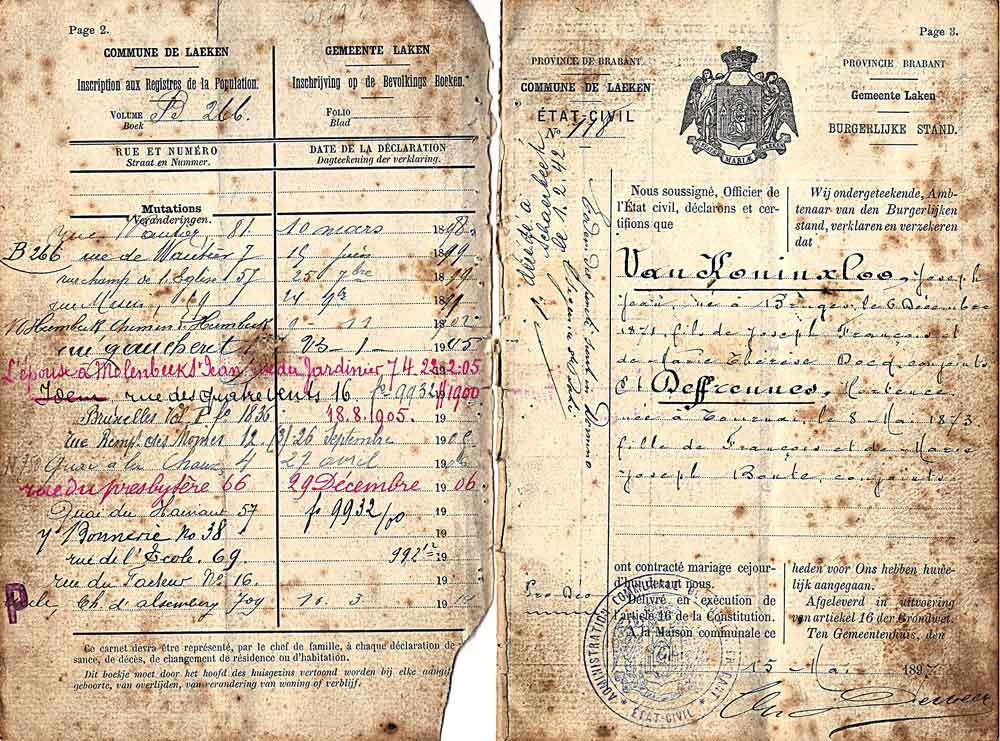 Page 2.
COMMUNE DE LAEKEN
Inscription aux Registres de la Population.
VOLUME B 266.
Boek
GEMEENTE LAKEN
Inschrijving op de Bevolkings Boeken.
FOLIO
Blad
RUE ET NUMÉRO
Straat en Nummer.
DATE DE LA DÉCLARATION
Dagteekening der verklaring.
Mutations
Veranderingen.
rue 81 10 mars 1898
B 266 rue de Wautier 7 15 juin 1899
rue champ de l'Eglise 57 25 7bre 18
rue 19 24
Humbeek Chemin d'Humbeek 9 11 1902
rue gaucheret 23 - 1 1945
L'épouse à Molenbeek St Jean rue du Jardinier 74 22-2-05
Idem rue des quatre vents 16 f° 9932/1900
Bruxelles Vol. P f° 1836 18.8.1905.
rue Remp. des Moines 12 26 Septembre 190
Quai à la Chaux 4 27 avril 190
rue du presbytère 66 29 Décembre 1906
Quai du Hainaut 57 f° 9932/00 19
Bonnerie No 38 19
rue de l'École. 69. 992 19
rue du Facteur No 16. 19
Ch. d'alsemberg 10. 3 19
Ce carnet devra être représenté, par le chef de famille, à chaque déclaration de
sance, de décès, de changement de résidence ou d'habitation.
Dit boekje moet door het hoofd des huisgezins vertoond worden bij elke aangif
geboorte, van overlijden, van verandering van woning of verblijf.
Page 3.
PROVINCE DE BRABANT
COMMUNE DE LAEKEN
ÉTAT-CIVIL
No 118
PROVINCIE BRABANT
Gemeente Laken
BURGERLIJKE STAND.
MARIÆ LAEKEN
Décédé à
Schaerbeek
le 4.2.42
Nous soussigné, Officier de
l'État civil, déclarons et cer-
tifions que
Wij ondergeteekende, Amb-
tenaar van den Burgerlijken
stand, verklaren en verzekeren
dat
Van Koninxloo, Joseph
Jean, né à Bruges, le 6 Décembre
1871, fils de Joseph François et
de Marie Thérèse conjoints
Et Deffrennes, Hortence,
née à Tournai, le 8 Mai 1873
fille de François et de Marie
Joseph Bonte, conjoints.
ont contracté mariage cejour-
d'hui devant nous.
Délivré en exécution de
l'article 16 de la Constitution.
A la Maison communale ce
heden voor Ons hebben huwe-
lijk aangegaan.
Afgeleverd in uitvoering
van artiekel 16 der Grondwet
Ten Gemeentenhuis, den
Pro Deo
15 Mai 189
ADMINISTRATION COMMUNALE DE LAEKEN
BRABANT
ÉTAT-CIVIL